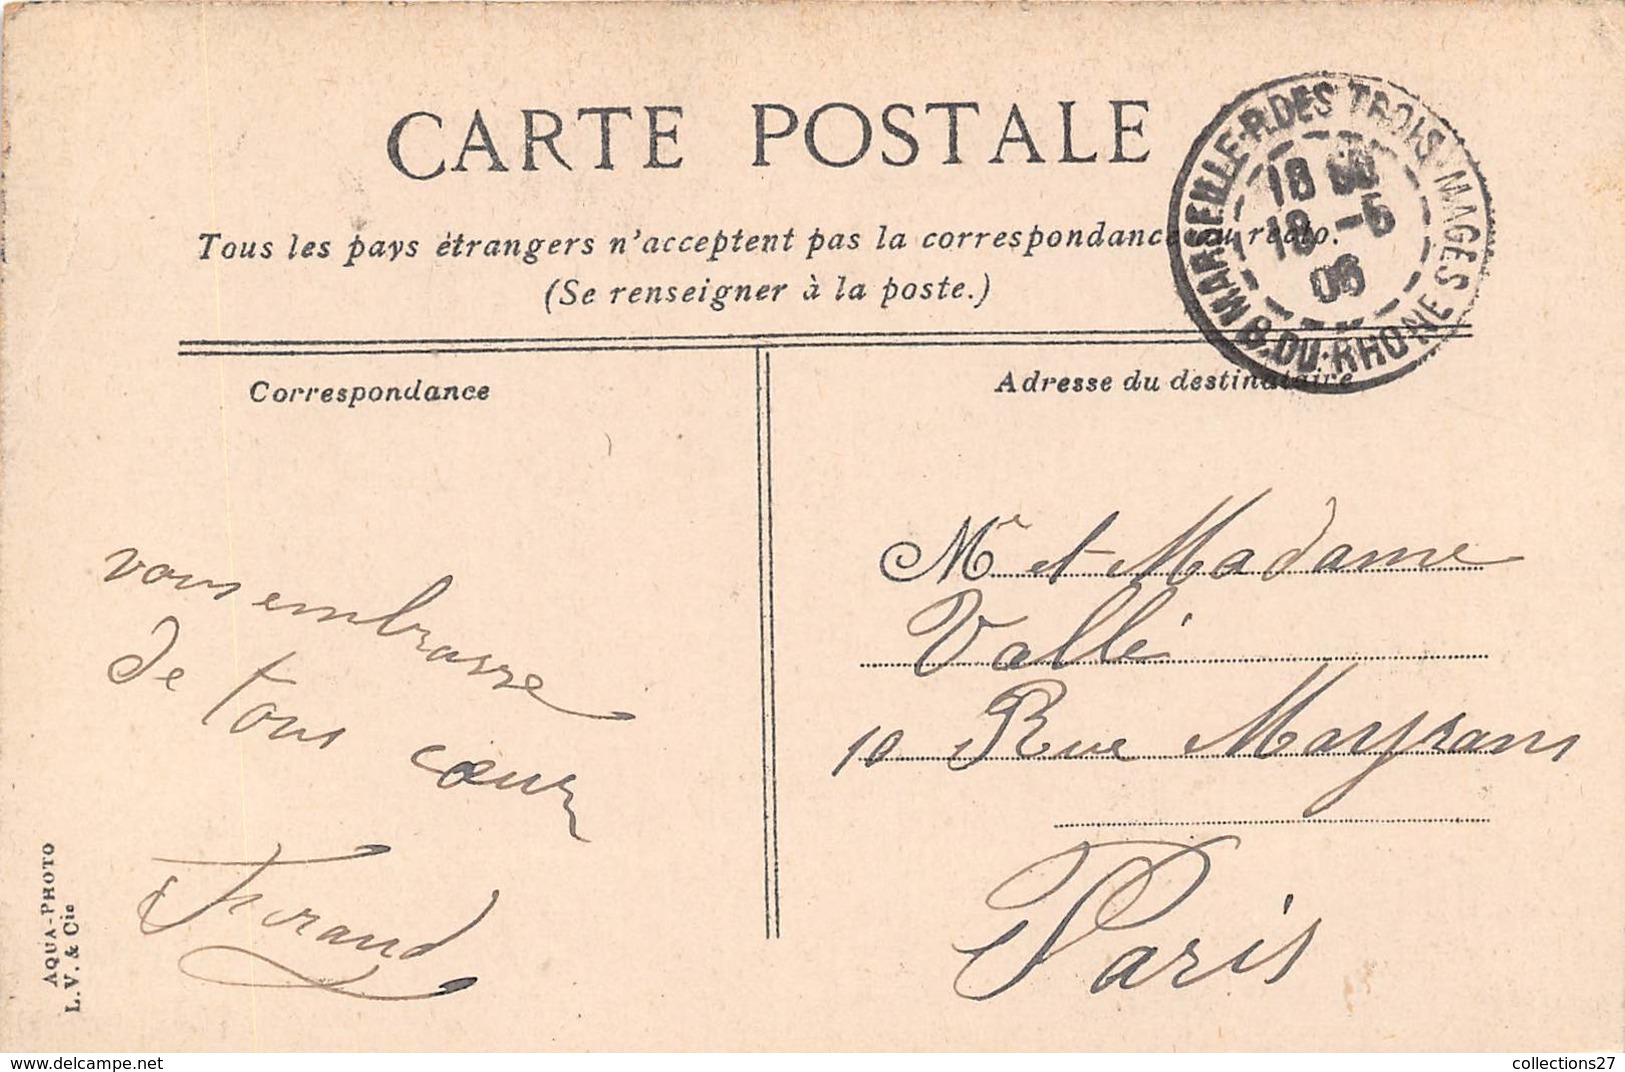 CARTE POSTALE
MARSEILLE-R. DES TROIS MAGES
B. DU-RHONE
18
18 -5
06
Tous les pays étrangers n'acceptent pas la correspondance au recto.
(Se renseigner à la poste.)
Correspondance
Adresse du destinataire
vous embrasse
de tous cœur
Mr et Madame
Vallé
10 Rue Mayrans
Paris
AQUA-PHOTO
L. V. & Cie
delcampe.net
collections27